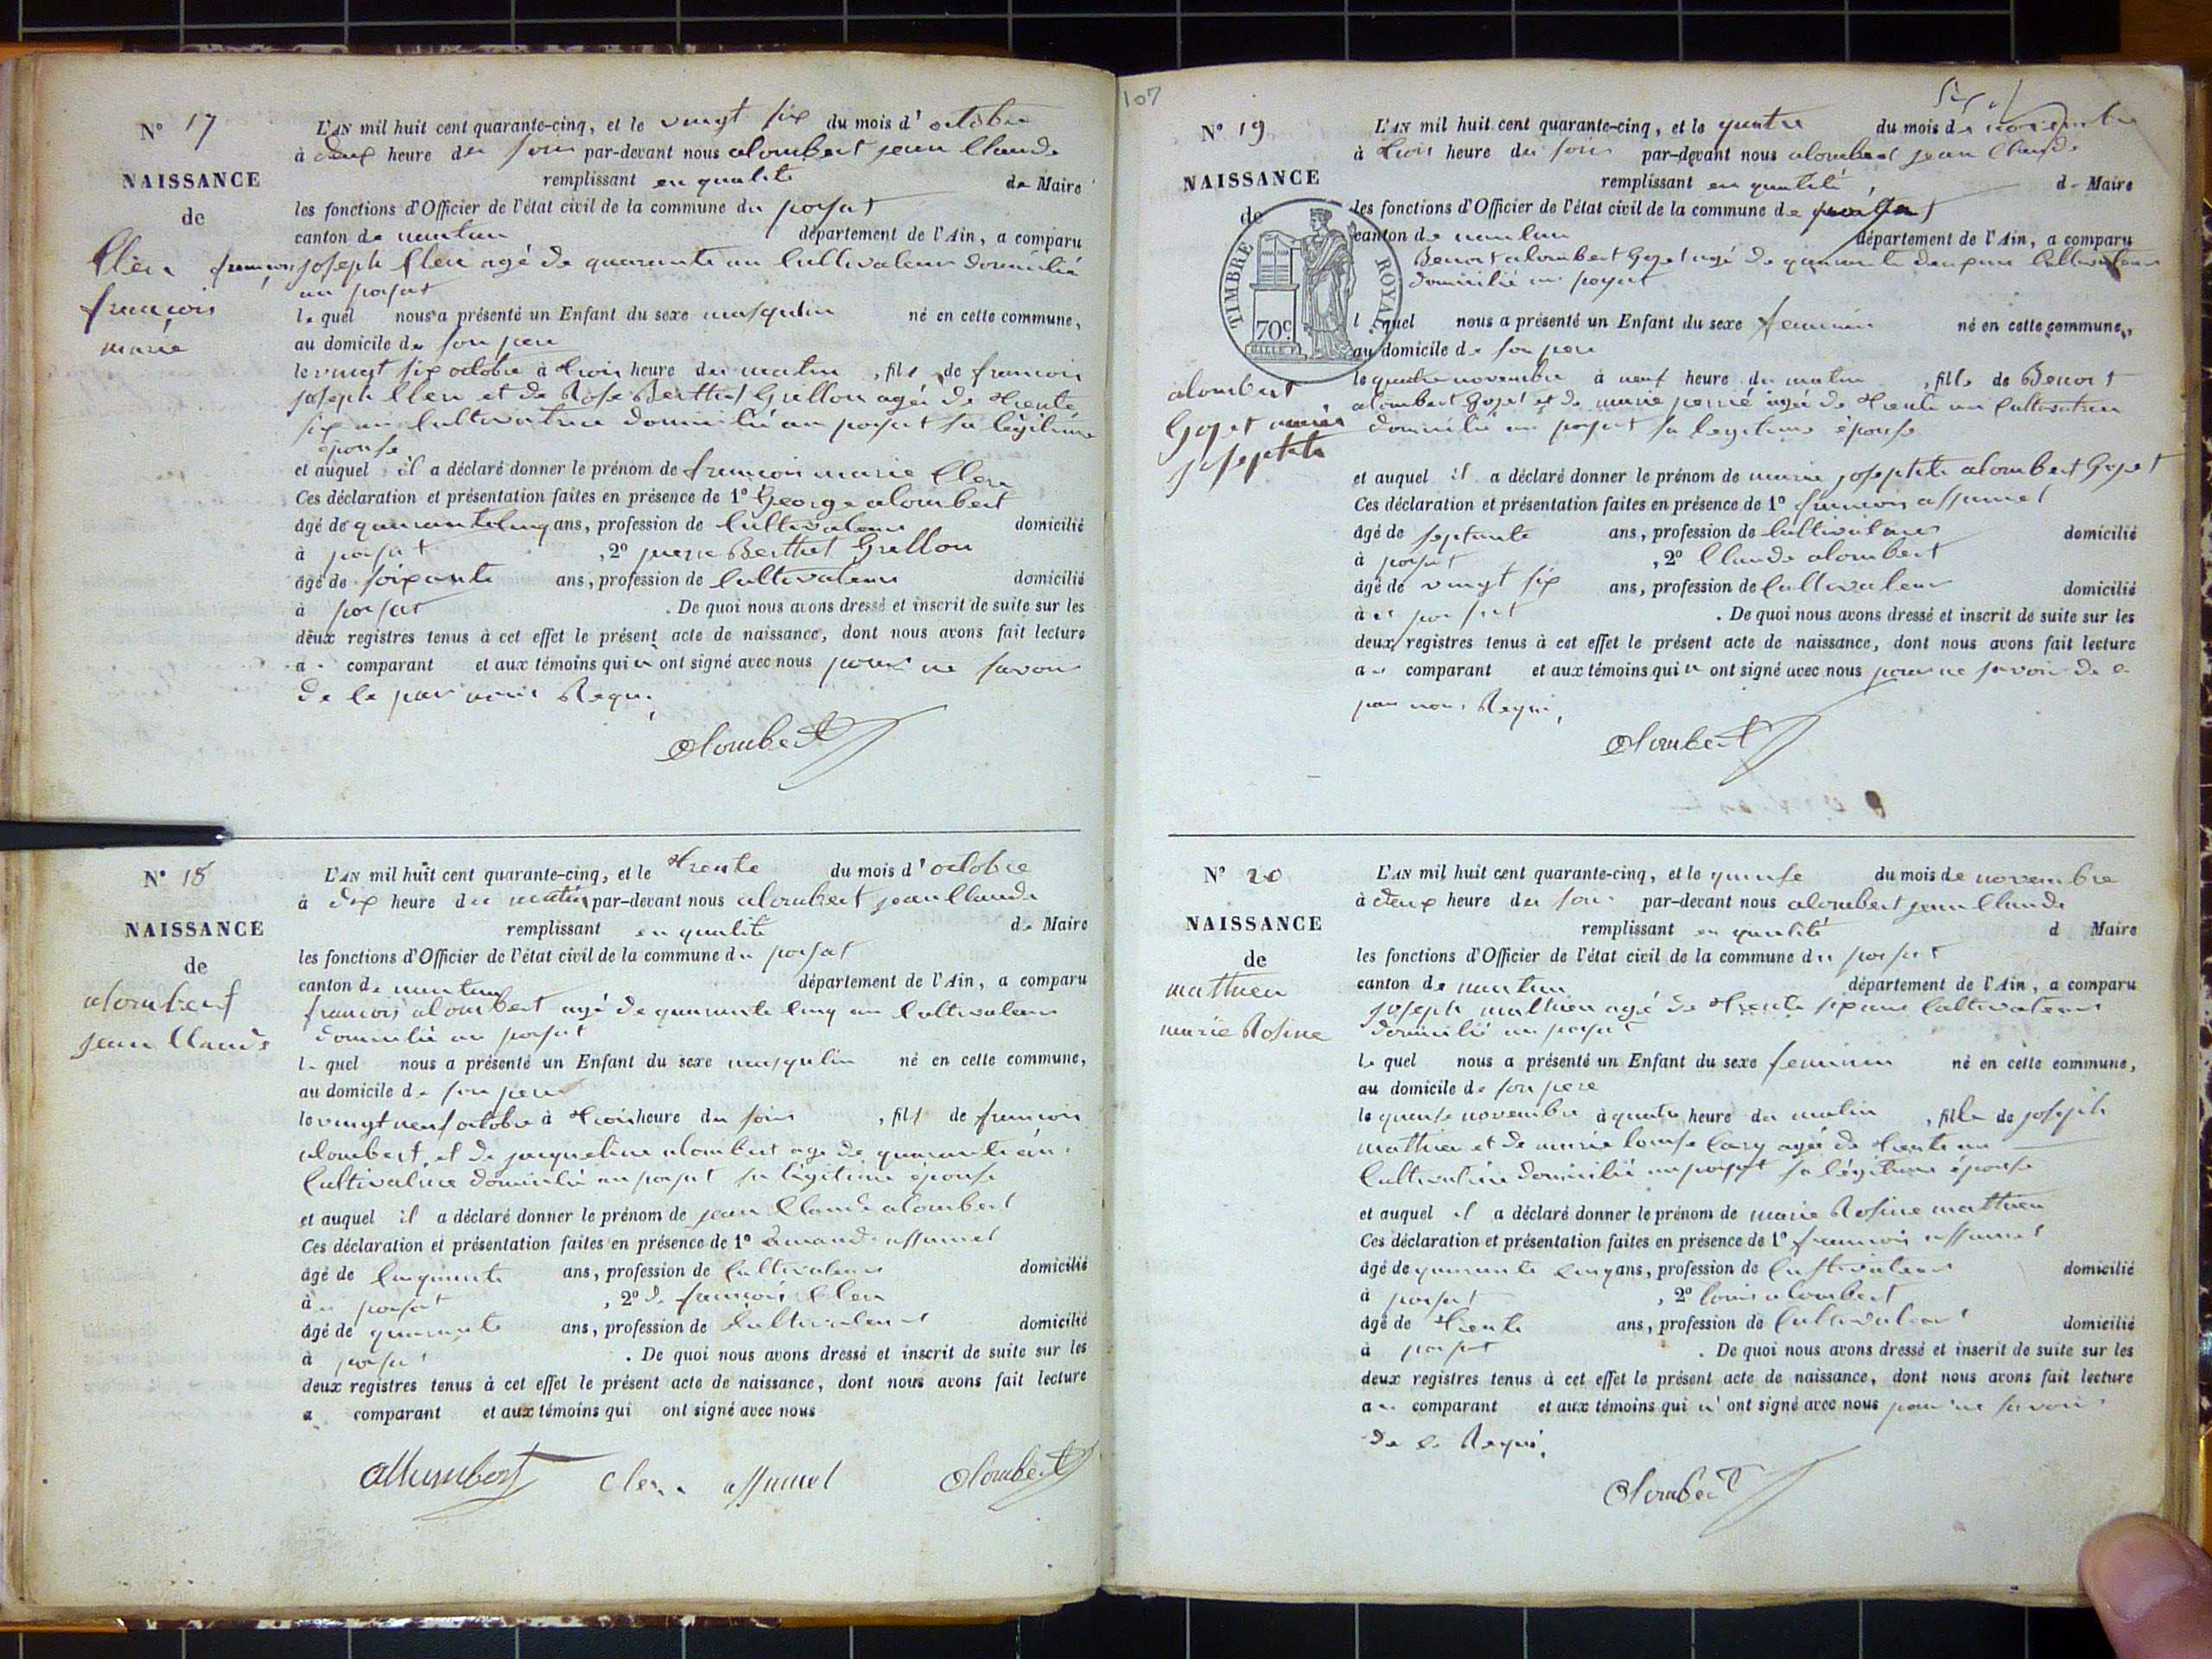 N° 17
NAISSANCE
de
Clerc
françois
marie
L'AN mil huit cent quarante-cinq, et le vingt six du mois d'octobre
à deux heure du soir par-devant nous alombert jean Claude
remplissant en qualité de Maire
les fonctions d'Officier de l'état civil de la commune du poyat
canton de nantua département de l'Ain, a comparu
françois joseph Clerc agé de quarante un Cultivateur domicilié
au poyat
le quel nous a présenté un Enfant du sexe masqulin né en cette commune,
au domicile de son pere
le vingt six octobre à trois heure du matin, fils de francois
joseph Clerc et de Rose Berthet Grillon agée de trente
six an Cultivatrice domicilié au poyat sa légitime
épouse
et auquel il a déclaré donner le prénom de francois marie Clerc
Ces déclaration et présentation faites en présence de 1° George alombert
âgé de quarante cinq ans, profession de Cultivateur domicilié
à poyat, 2° pierre Berthet Grillon
âgé de soixante ans, profession de Cultivateur domicilié
à poyat. De quoi nous avons dressé et inscrit de suite sur les
deux registres tenus à cet effet le présent acte de naissance, dont nous avons fait lecture
au comparant et aux témoins qui n'ont signé avec nous pour ne savoir
de ce par nous Requi,
alombert
N° 18
NAISSANCE
de
alombert
jean Claude
L'AN mil huit cent quarante-cinq, et le trente du mois d'octobre
à dix heure du matin par-devant nous alombert jean Claude
remplissant en qualité de Maire
les fonctions d'Officier de l'état civil de la commune du poyat
canton de nantua département de l'Ain, a comparu
francois alombert agé de quarante cinq an Cultivateur
domicilié au poyat
le quel nous a présenté un Enfant du sexe masqulin né en cette commune,
au domicile de son pere
le vingt neuf octobre à trois heure du soir, fils de francois
alombert, et de jacqueline alombert age de quarante an
Cultivatrice domicilié au poyat sa légitime épouse
et auquel il a déclaré donner le prénom de jean Claude alombert
Ces déclaration et présentation faites en présence de 1° assumel
âgé de Cinquante ans, profession de Cultivateur domicilié
au poyat, 2° francois Clerc
âgé de quarante ans, profession de Cultivateur domicilié
à poyat. De quoi nous avons dressé et inscrit de suite sur les
deux registres tenus à cet effet le présent acte de naissance, dont nous avons fait lecture
a comparant et aux témoins qui ont signé avec nous
allumbert Clerc assumel alombert
107
N° 19
NAISSANCE
de
TIMBRE ROYAL
70c
alombert
Gojet marie
josephte
L'AN mil huit cent quarante-cinq, et le quatre du mois de novembre
à trois heure du soir par-devant nous alombert jean Claude
remplissant en qualité de Maire
les fonctions d'Officier de l'état civil de la commune de poyat
canton de nantua département de l'Ain, a comparu
Benoit alombert Gojet agé de quarante deux ans Cultivateur
domicilié au poyat
lequel nous a présenté un Enfant du sexe feminin né en cette commune,
au domicile de son pere
le quatre novembre à neuf heure du matin, fille de Benoit
alombert Gojet et de marie agée de trente an Cultivatrice
domicilié au poyat sa legitime épouse
et auquel il a déclaré donner le prénom de marie josephte alombert Gojet
Ces déclaration et présentation faites en présence de 1° francois assumel
âgé de septante ans, profession de Cultivateur domicilié
à poyat, 2° Claude alombert
âgé de vingt six ans, profession de Cultivateur domicilié
au poyat. De quoi nous avons dressé et inscrit de suite sur les
deux registres tenus à cet effet le présent acte de naissance, dont nous avons fait lecture
au comparant et aux témoins qui n'ont signé avec nous pour ne savoir de ce
par nous Requi,
alombert
N° 20
NAISSANCE
de
mathieu
marie Rosine
L'AN mil huit cent quarante-cinq, et le quinse du mois de novembre
à deux heure du soir par-devant nous alombert jean Claude
remplissant en qualité d Maire
les fonctions d'Officier de l'état civil de la commune du poyat
canton de nantua département de l'Ain, a comparu
joseph mathieu agé de trente six ans Cultivateur
domicilié au poyat
le quel nous a présenté un Enfant du sexe feminin né en cette commune,
au domicile de son pere
le quinse novembre à quatre heure du matin, fille de joseph
mathieu et de marie louise agée de trente an
Cultivatrice domicilié au poyat sa légitime épouse
et auquel il a déclaré donner le prénom de marie Rosine mathieu
Ces déclaration et présentation faites en présence de 1° francois assumel
âgé de quarante cinq ans, profession de Cultivateur domicilié
à poyat, 2° louis alombert
âgé de trente ans, profession de Cultivateur domicilié
à poyat. De quoi nous avons dressé et inscrit de suite sur les
deux registres tenus à cet effet le présent acte de naissance, dont nous avons fait lecture
au comparant et aux témoins qui n'ont signé avec nous pour ne savoir
de ce Requi,
alombert